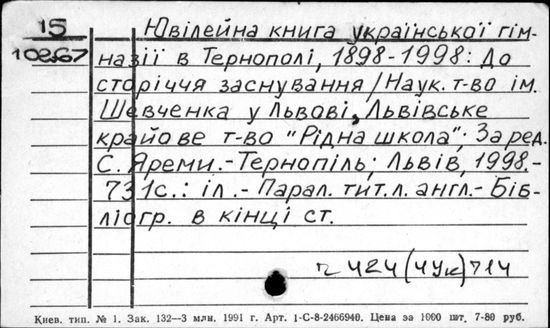 15
10267
Ювілейна книга української гім-
назії в Тернополі, 1898-1998: До
сторіччя заснування / Наук. т-во ім.
Шевченка у Львові, Львівське
крайове т-во "Рідна школа"; За ред.
С. Яреми.-Тернопіль; Львів, 1998.-
731с.: іл.- Парал. тит.л. англ.- Біб-
ліогр. в кінці ст.
ч 424(4Ук)714
Киев. тип. № 1. Зак. 132—3 млн. 1991 г. Арт. 1-С-8-2466940. Цена за 1000 шт. 7-80 руб.